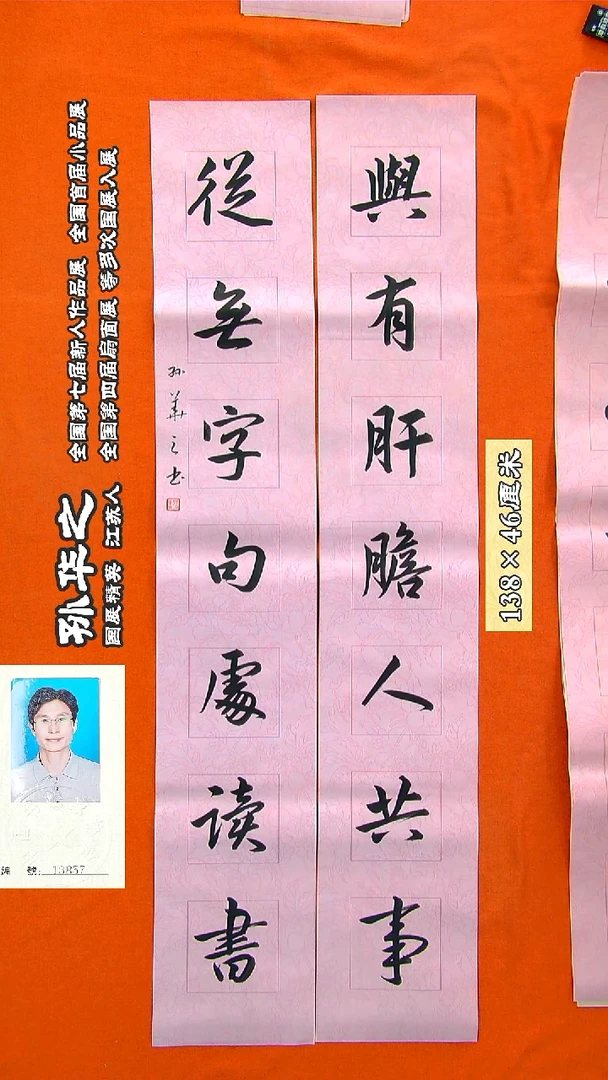 與有肝膽人共事
從無字句處读書
孙華之书
138×46厘米
孙华之
国展精英 江苏人
全国第七届新人作品展 全国首届小品展
全国第四届扇面展 等多次国展入展
编 号: 13857